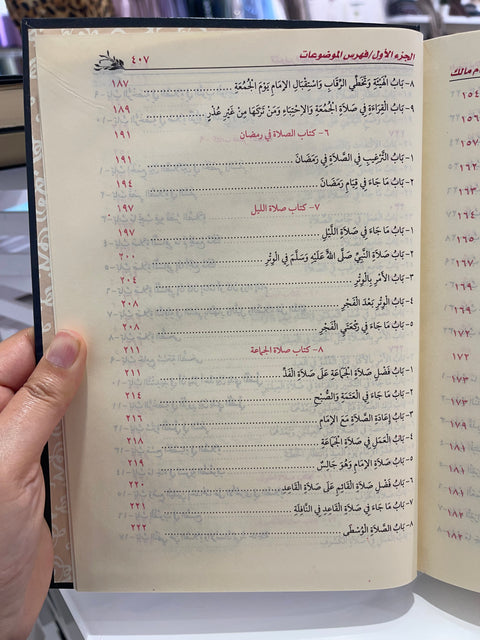 الجزء الأول/فهرس الموضوعات ٤٠٧
٨- بَابُ الهَيْئَةِ وَتَخَطِّي الرِّقَابِ وَاسْتِقْبَالِ الإِمَامِ يَوْمَ الجُمُعَةِ ١٨٧
٩- بَابُ القِرَاءَةِ فِي صَلَاةِ الجُمُعَةِ وَالِاحْتِبَاءِ وَمَنْ تَرَكَهَا مِنْ غَيْرِ عُذْرٍ ١٨٩
٦- كتاب الصلاة في رمضان ١٩١
١- بَابُ التَّرْغِيبِ فِي الصَّلَاةِ فِي رَمَضَانَ ١٩١
٢- بَابُ مَا جَاءَ فِي قِيَامِ رَمَضَانَ ١٩٤
٧- كتاب صلاة الليل ١٩٧
١- بَابُ مَا جَاءَ فِي صَلَاةِ اللَّيْلِ ١٩٧
٢- بَابُ صَلَاةِ النَّبِيِّ صَلَّى اللهُ عَلَيْهِ وَسَلَّمَ فِي الوِتْرِ ٢٠٠
٣- بَابُ الأَمْرِ بِالْوِتْرِ ٢٠٤
٤- بَابُ الوِتْرِ بَعْدَ الفَجْرِ ٢٠٨
٥- بَابُ مَا جَاءَ فِي رَكْعَتَيِ الفَجْرِ ٢٠٨
٨- كتاب صلاة الجماعة ٢١١
١- بَابُ فَضْلِ صَلَاةِ الجَمَاعَةِ عَلَى صَلَاةِ الفَذِّ ٢١١
٢- بَابُ مَا جَاءَ فِي العَتَمَةِ وَالصُّبْحِ ٢١٤
٣- بَابُ إِعَادَةِ الصَّلَاةِ مَعَ الإِمَامِ ٢١٦
٤- بَابُ العَمَلِ فِي صَلَاةِ الجَمَاعَةِ ٢١٨
٥- بَابُ صَلَاةِ الإِمَامِ وَهُوَ جَالِسٌ ٢١٩
٦- بَابُ فَضْلِ صَلَاةِ القَائِمِ عَلَى صَلَاةِ القَاعِدِ ٢٢٠
٧- بَابُ مَا جَاءَ فِي صَلَاةِ القَاعِدِ فِي النَّافِلَةِ ٢٢١
٨- بَابُ الصَّلَاةِ الوُسْطَى ٢٢٢